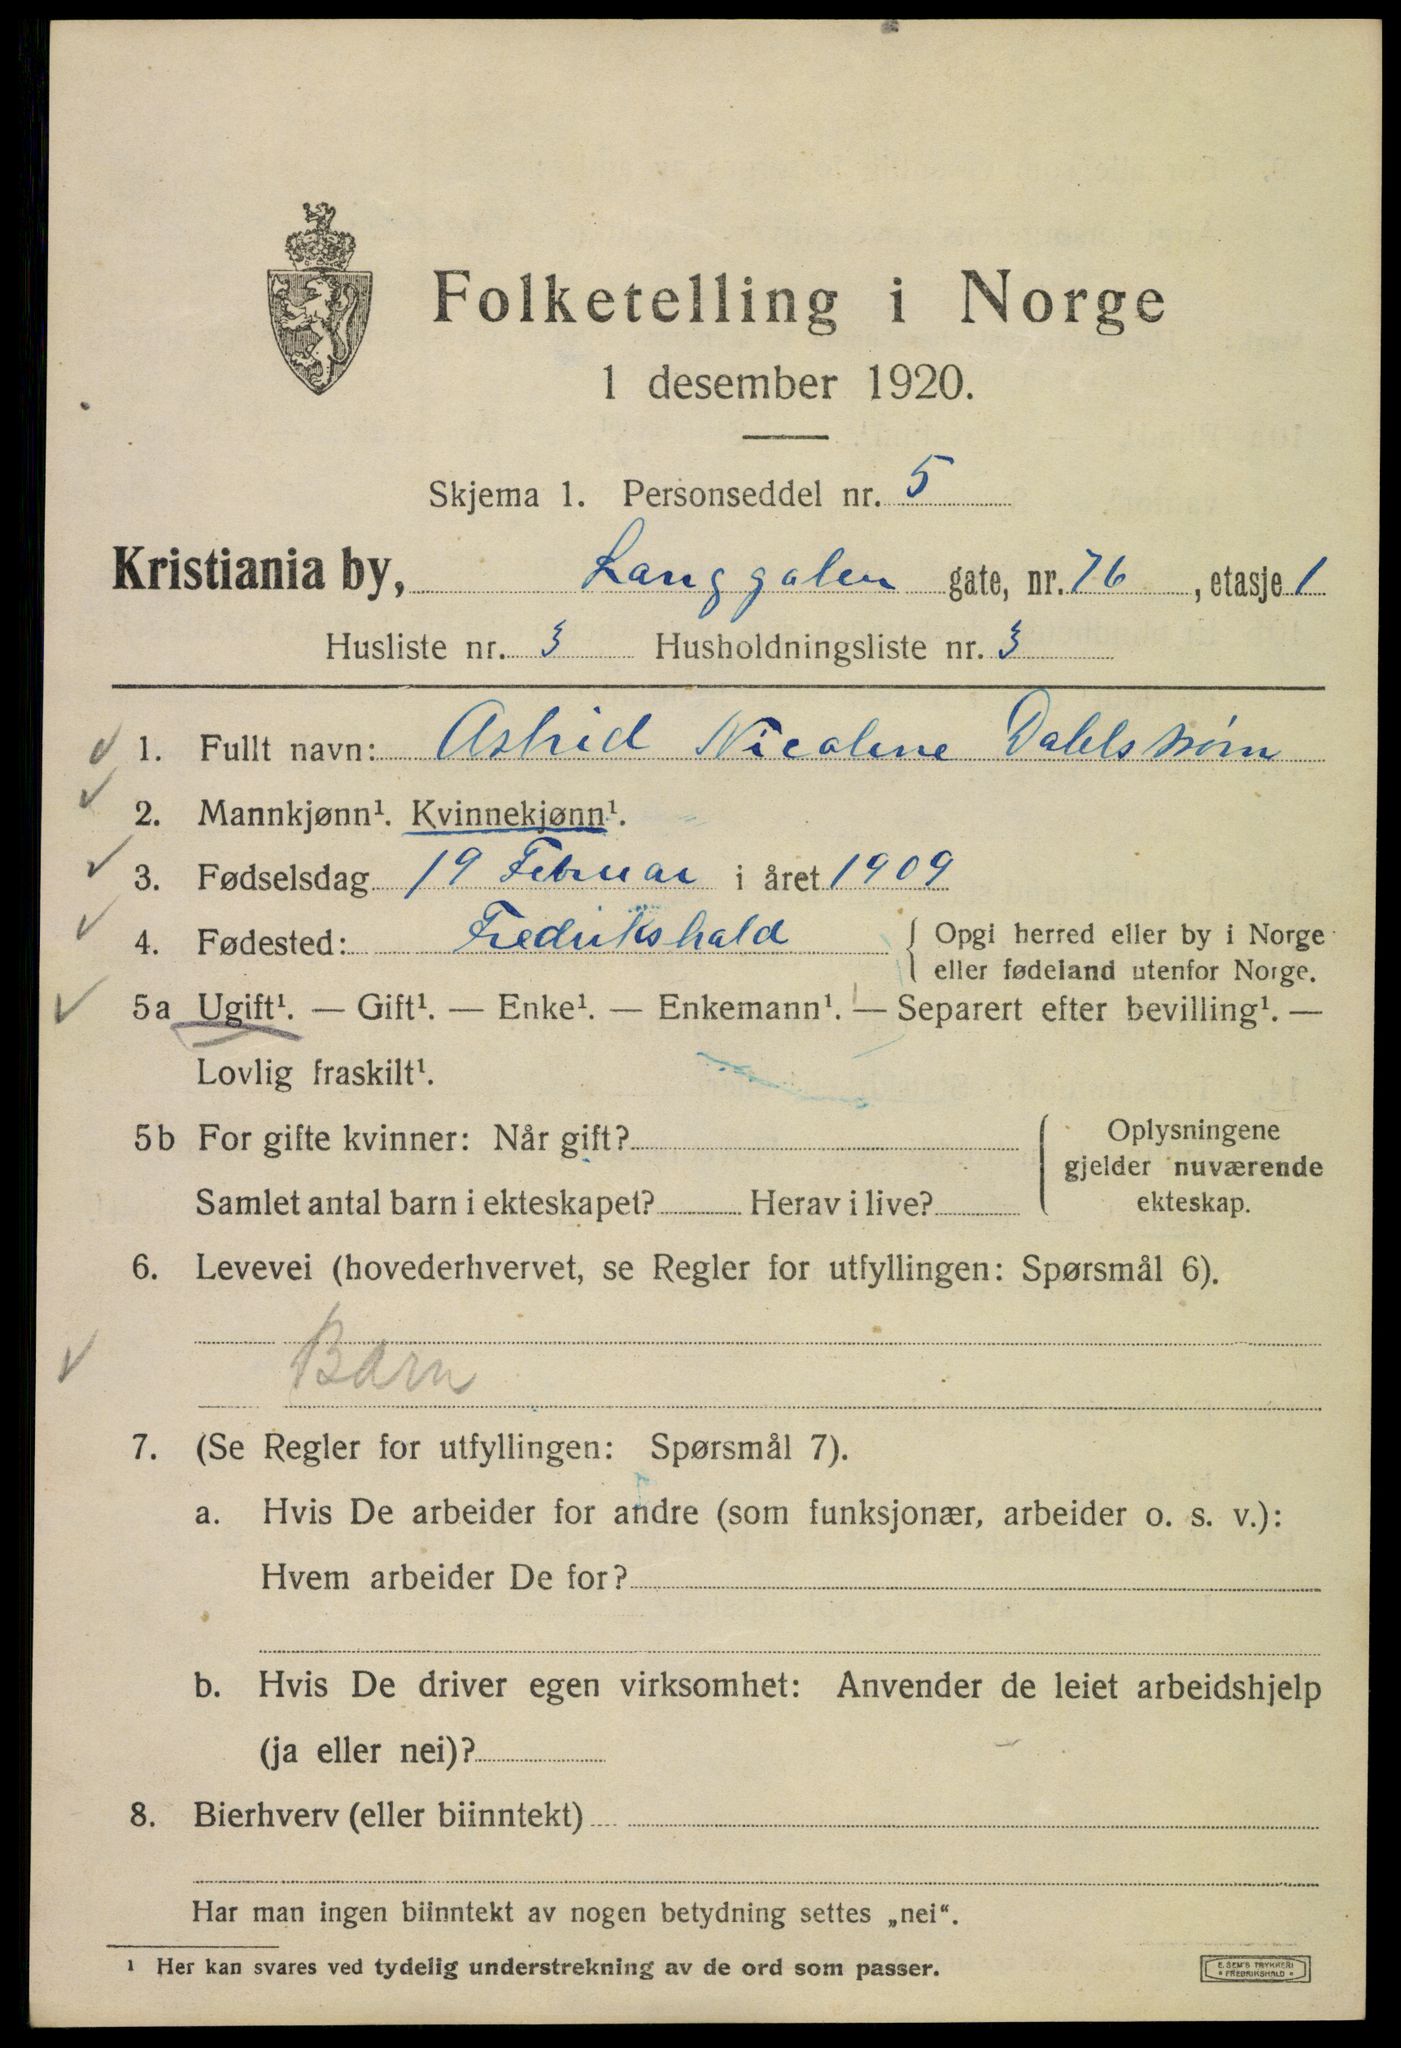 Folketelling i Norge
1 desember 1920.
Skjema 1. Personseddel nr. 5
Kristiania by, Langgaten gate, nr. 76, etasje 1
Husliste nr. 3 Husholdningsliste nr. 3
1. Fullt navn: Astrid Nicoline Dahlstrøm
2. Mannkjønn¹. Kvinnekjønn¹.
3. Fødselsdag 19 Februar i året 1909
4. Fødested: Fredrikshald { Opgi herred eller by i Norge
eller fødeland utenfor Norge.
5a Ugift¹. — Gift¹. — Enke¹. — Enkemann¹. — Separert efter bevilling¹. —
Lovlig fraskilt¹.
5b For gifte kvinner: Når gift? { Oplysningene
gjelder nuværende
Samlet antal barn i ekteskapet? Herav i live? ekteskap.
6. Levevei (hovederhvervet, se Regler for utfyllingen: Spørsmål 6).
Barn
7. (Se Regler for utfyllingen: Spørsmål 7).
a. Hvis De arbeider for andre (som funksjonær, arbeider o. s. v.):
Hvem arbeider De for?
b. Hvis De driver egen virksomhet: Anvender de leiet arbeidshjelp
(ja eller nei)?
8. Bierhverv (eller biinntekt)
Har man ingen biinntekt av nogen betydning settes „nei“.
¹ Her kan svares ved tydelig understrekning av de ord som passer.
E. SEM'S TRYKKERI
* FREDRIKSHALD *